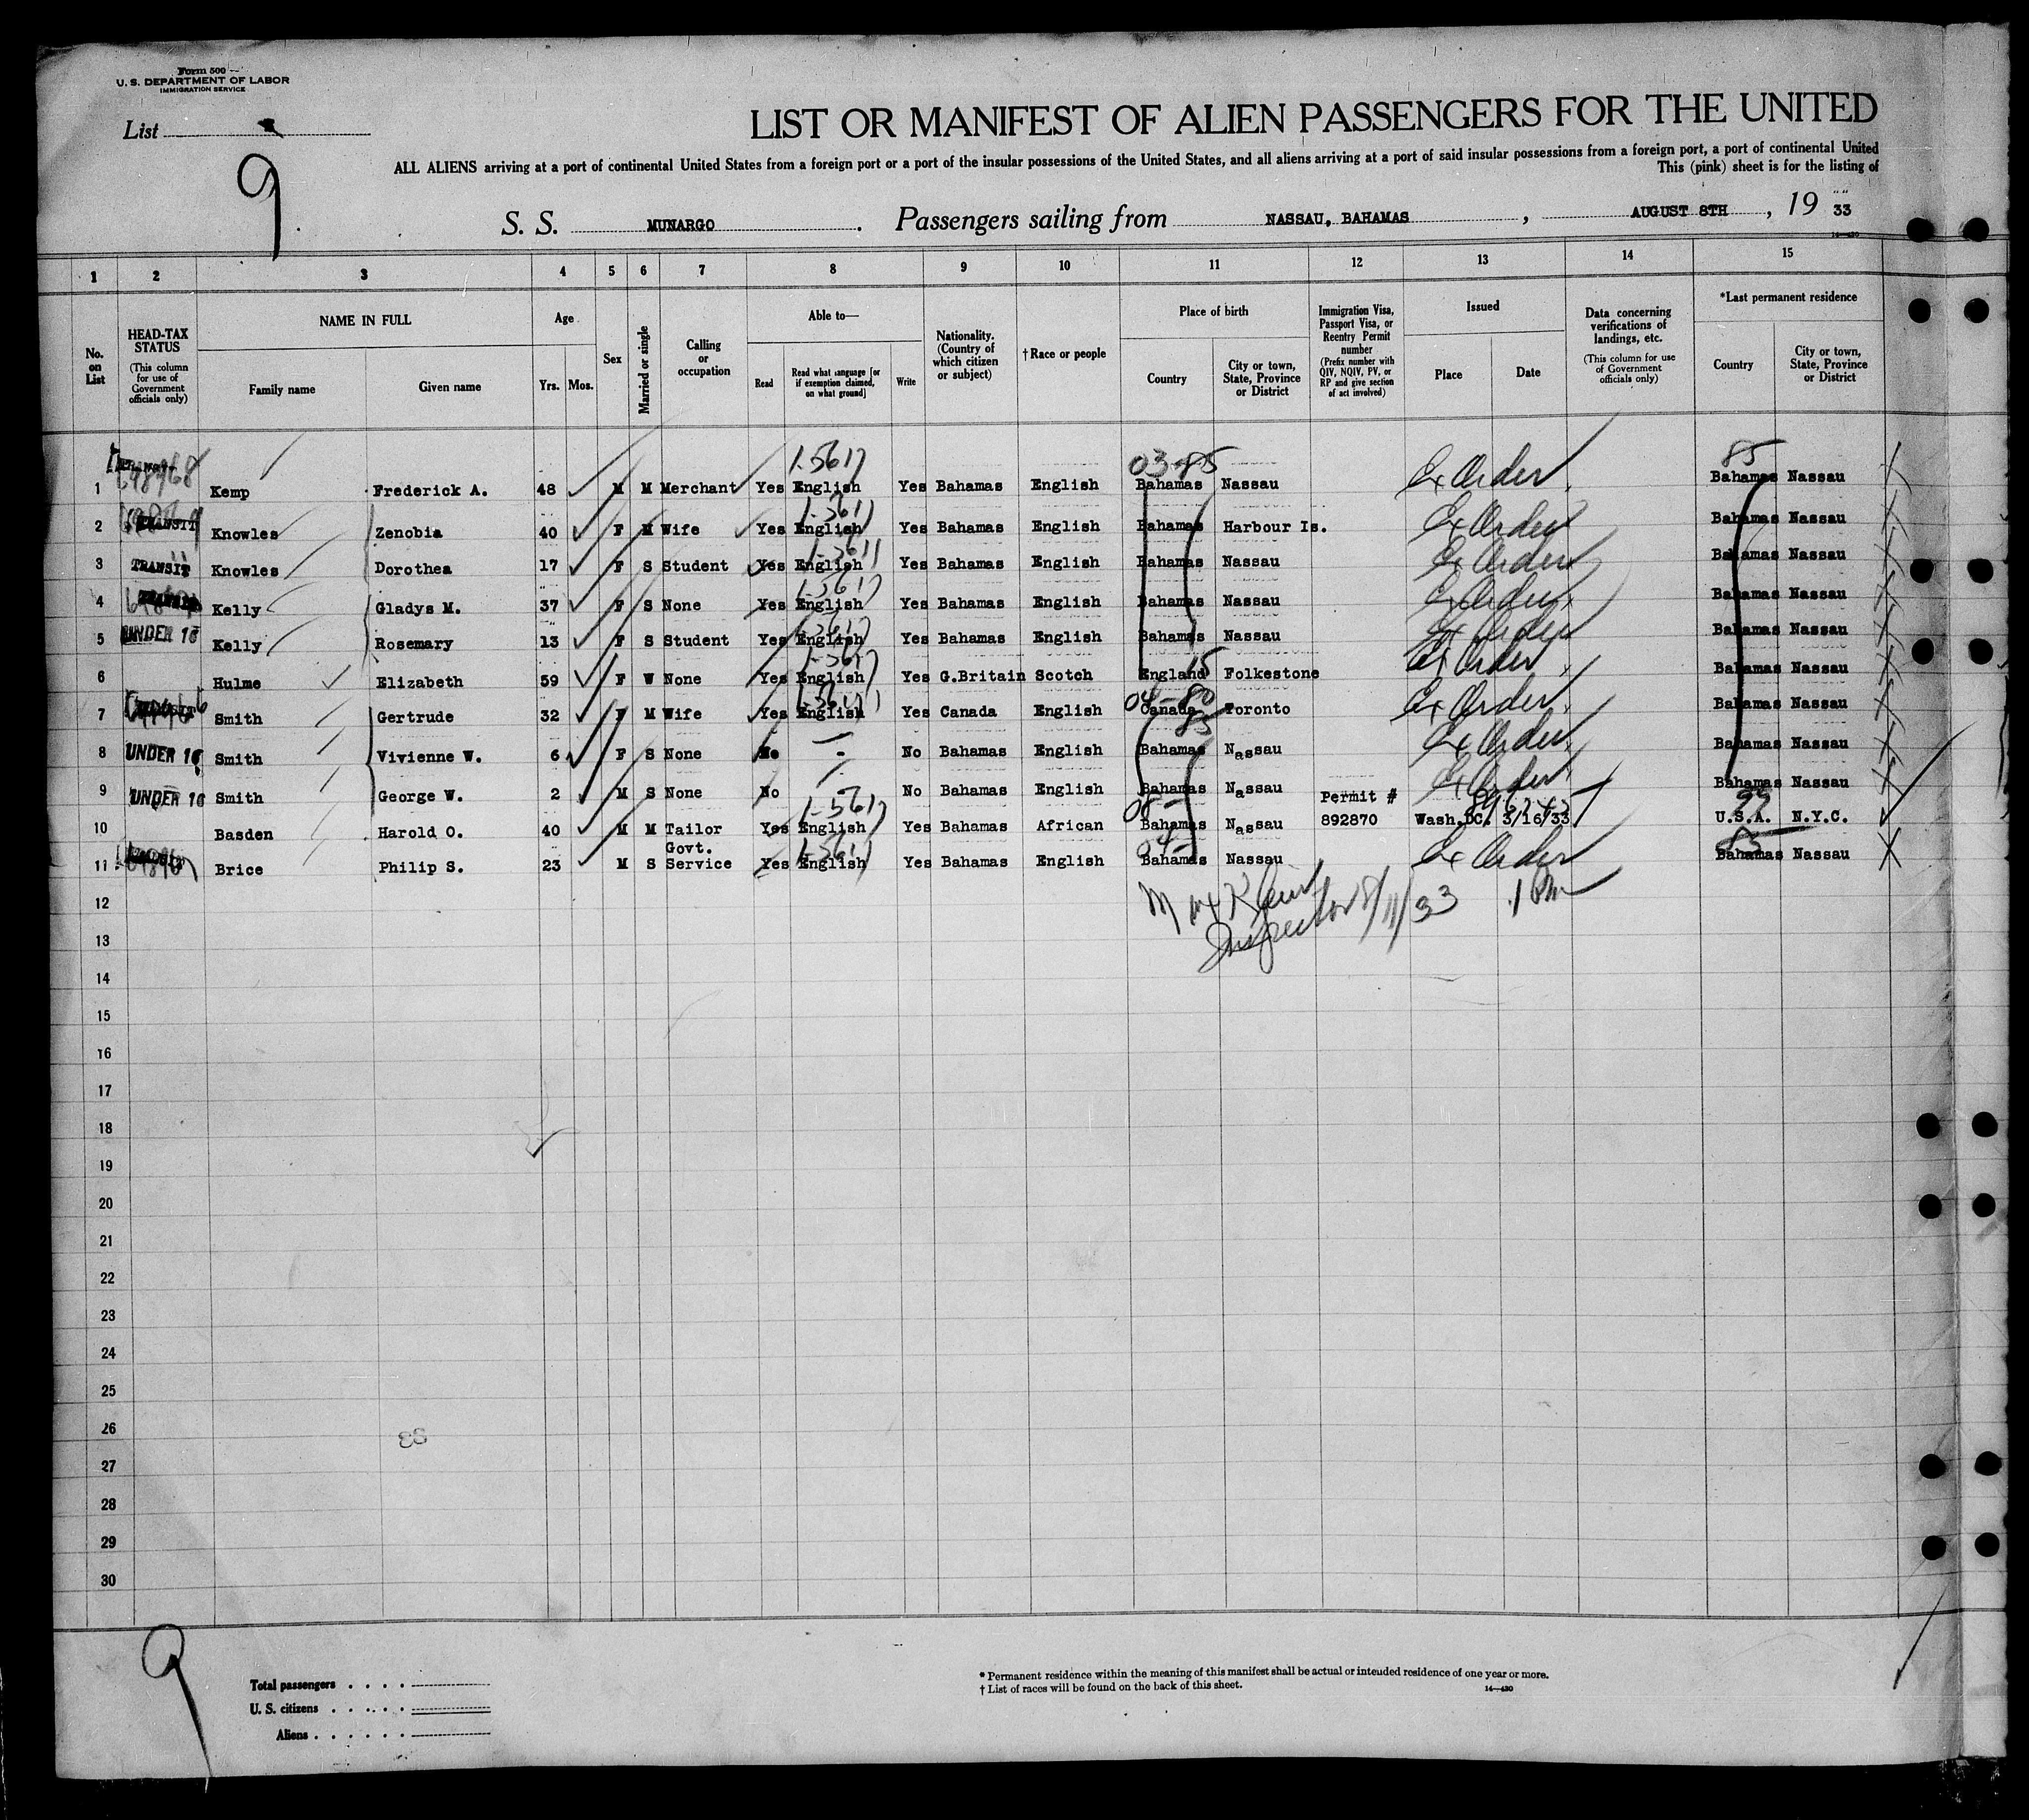 Form 500
U. S. DEPARTMENT OF LABOR
IMMIGRATION SERVICE
List
9
LIST OR MANIFEST OF ALIEN PASSENGERS FOR THE UNITED
ALL ALIENS arriving at a port of continental United States from a foreign port or a port of the insular possessions of the United States, and all aliens arriving at a port of said insular possessions from a foreign port, a port of continental United
This (pink) sheet is for the listing of
S. S. MUNARGO. Passengers sailing from NASSAU, BAHAMAS, AUGUST 8TH, 19 33
14—430
1 2 3 4 5 6 7 8 9 10 11 12 13 14 15
No. on List
HEAD-TAX STATUS (This column for use of Government officials only)
NAME IN FULL
Family name Given name
Age
Yrs. Mos.
Sex
Married or single
Calling or occupation
Able to—
Read Read what language [or if exemption claimed, on what ground] Write
Nationality. (Country of which citizen or subject)
†Race or people
Place of birth
Country City or town, State, Province or District
Immigration Visa, Passport Visa, or Reentry Permit number (Prefix number with QIV, NQIV, PV, or RP and give section of act involved)
Issued
Place Date
Data concerning verifications of landings, etc. (This column for use of Government officials only)
*Last permanent residence
Country City or town, State, Province or District
03-85 85
1 Kemp Frederick A. 48 M M Merchant Yes English Yes Bahamas English Bahamas Nassau Ex Order Bahamas Nassau
2 TRANSIT Knowles Zenobia 40 F M Wife Yes English Yes Bahamas English Bahamas Harbour Is. Ex Order Bahamas Nassau
3 TRANSIT Knowles Dorothea 17 F S Student Yes English Yes Bahamas English Bahamas Nassau Ex Order Bahamas Nassau
4 Kelly Gladys M. 37 F S None Yes English Yes Bahamas English Bahamas Nassau Ex Order Bahamas Nassau
5 UNDER 16 Kelly Rosemary 13 F S Student Yes English Yes Bahamas English Bahamas Nassau Ex Order Bahamas Nassau
6 Hulme Elizabeth 59 F W None Yes English Yes G.Britain Scotch England 15 Folkestone Ex Order Bahamas Nassau
7 Smith Gertrude 32 F M Wife Yes English Yes Canada English Canada Toronto Ex Order Bahamas Nassau
8 UNDER 16 Smith Vivienne W. 6 F S None No - No Bahamas English Bahamas Nassau Ex Order Bahamas Nassau
9 UNDER 16 Smith George W. 2 M S None No No Bahamas English Bahamas Nassau Ex Order Bahamas Nassau
10 Basden Harold O. 40 M M Tailor Yes English Yes Bahamas African Bahamas Nassau Permit # 892870 Wash.DC. 3/16/33 U.S.A. N.Y.C.
11 Brice Philip S. 23 M S Govt. Service Yes English Yes Bahamas English Bahamas Nassau Ex Order Bahamas Nassau
Max Klein 1 PM
Inspector 8/11/33
12
13
14
15
16
17
18
19
20
21
22
23
24
25
26
27
28
29
30
9
Total passengers
U. S. citizens
Aliens
* Permanent residence within the meaning of this manifest shall be actual or intended residence of one year or more.
† List of races will be found on the back of this sheet.
14—430